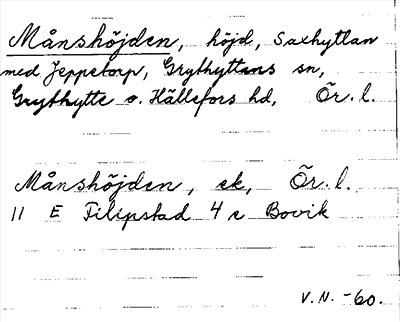 Månshöjden, höjd, Saxhyttan
med Jeppetorp, Grythyttans sn,
Grythytte o. Hällefors hd, Ör. l.
Månshöjden, ek, Ör. l.
11 E Filipstad 4 c Bovik
V.N. -60.